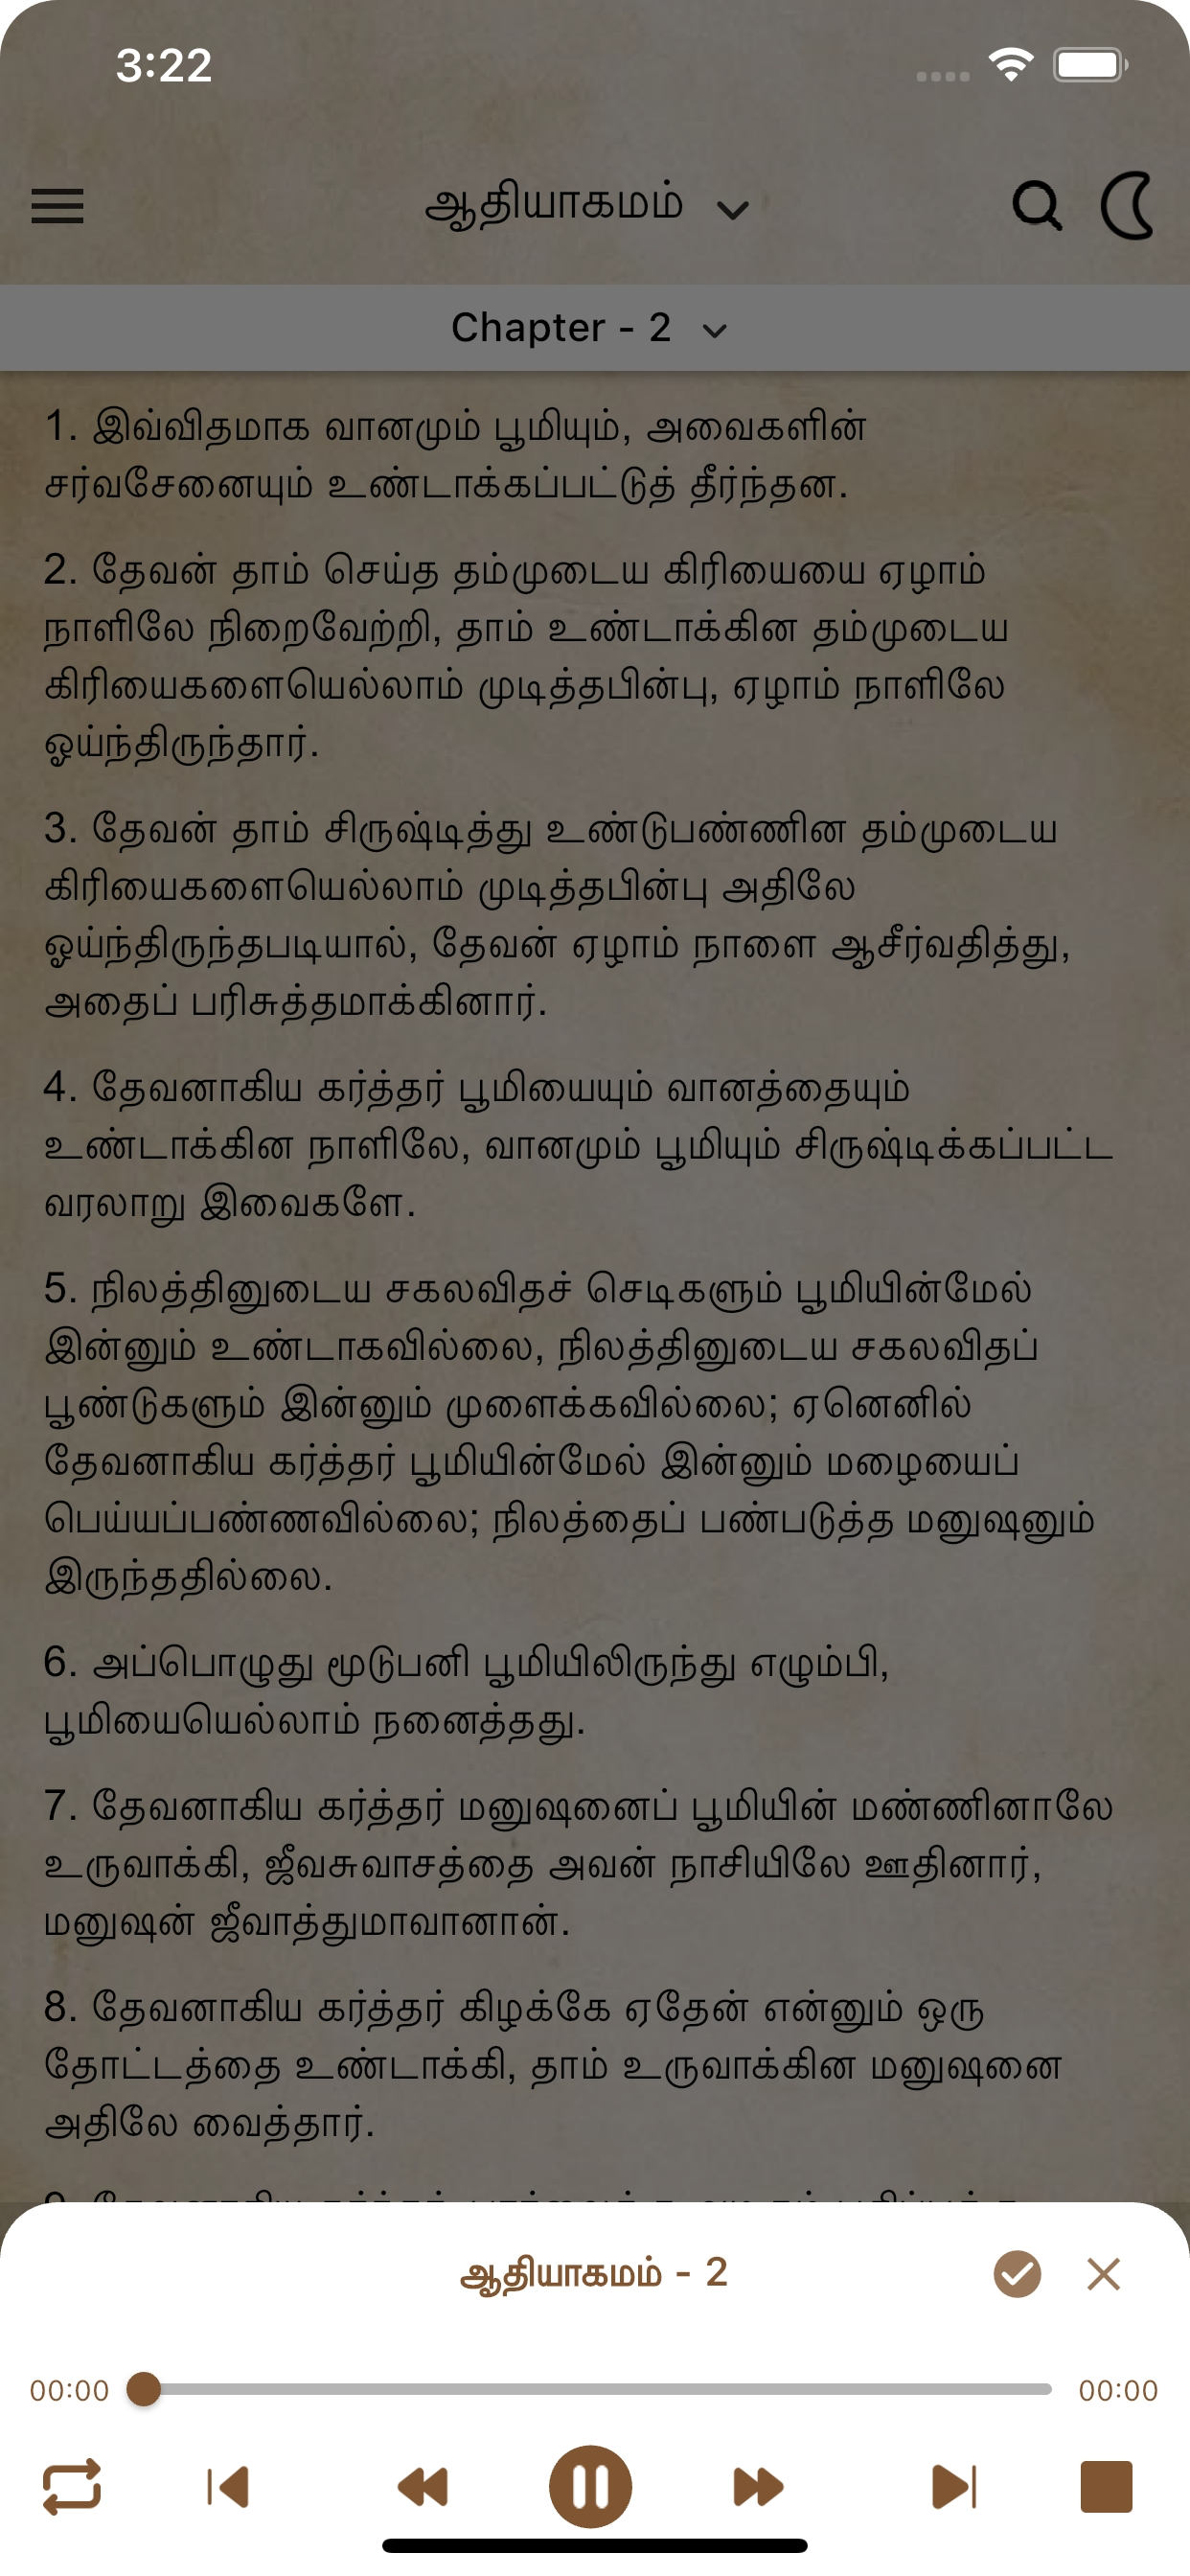 3:22
ஆதியாகமம்
Chapter - 2
1. இவ்விதமாக வானமும் பூமியும், அவைகளின்
சர்வசேனையும் உண்டாக்கப்பட்டுத் தீர்ந்தன.
2. தேவன் தாம் செய்த தம்முடைய கிரியையை ஏழாம்
நாளிலே நிறைவேற்றி, தாம் உண்டாக்கின தம்முடைய
கிரியைகளையெல்லாம் முடித்தபின்பு, ஏழாம் நாளிலே
ஓய்ந்திருந்தார்.
3. தேவன் தாம் சிருஷ்டித்து உண்டுபண்ணின தம்முடைய
கிரியைகளையெல்லாம் முடித்தபின்பு அதிலே
ஓய்ந்திருந்தபடியால், தேவன் ஏழாம் நாளை ஆசீர்வதித்து,
அதைப் பரிசுத்தமாக்கினார்.
4. தேவனாகிய கர்த்தர் பூமியையும் வானத்தையும்
உண்டாக்கின நாளிலே, வானமும் பூமியும் சிருஷ்டிக்கப்பட்ட
வரலாறு இவைகளே.
5. நிலத்தினுடைய சகலவிதச் செடிகளும் பூமியின்மேல்
இன்னும் உண்டாகவில்லை, நிலத்தினுடைய சகலவிதப்
பூண்டுகளும் இன்னும் முளைக்கவில்லை; ஏனெனில்
தேவனாகிய கர்த்தர் பூமியின்மேல் இன்னும் மழையைப்
பெய்யப்பண்ணவில்லை; நிலத்தைப் பண்படுத்த மனுஷனும்
இருந்ததில்லை.
6. அப்பொழுது மூடுபனி பூமியிலிருந்து எழும்பி,
பூமியையெல்லாம் நனைத்தது.
7. தேவனாகிய கர்த்தர் மனுஷனைப் பூமியின் மண்ணினாலே
உருவாக்கி, ஜீவசுவாசத்தை அவன் நாசியிலே ஊதினார்,
மனுஷன் ஜீவாத்துமாவானான்.
8. தேவனாகிய கர்த்தர் கிழக்கே ஏதேன் என்னும் ஒரு
தோட்டத்தை உண்டாக்கி, தாம் உருவாக்கின மனுஷனை
அதிலே வைத்தார்.
ஆதியாகமம் - 2
00:00 00:00